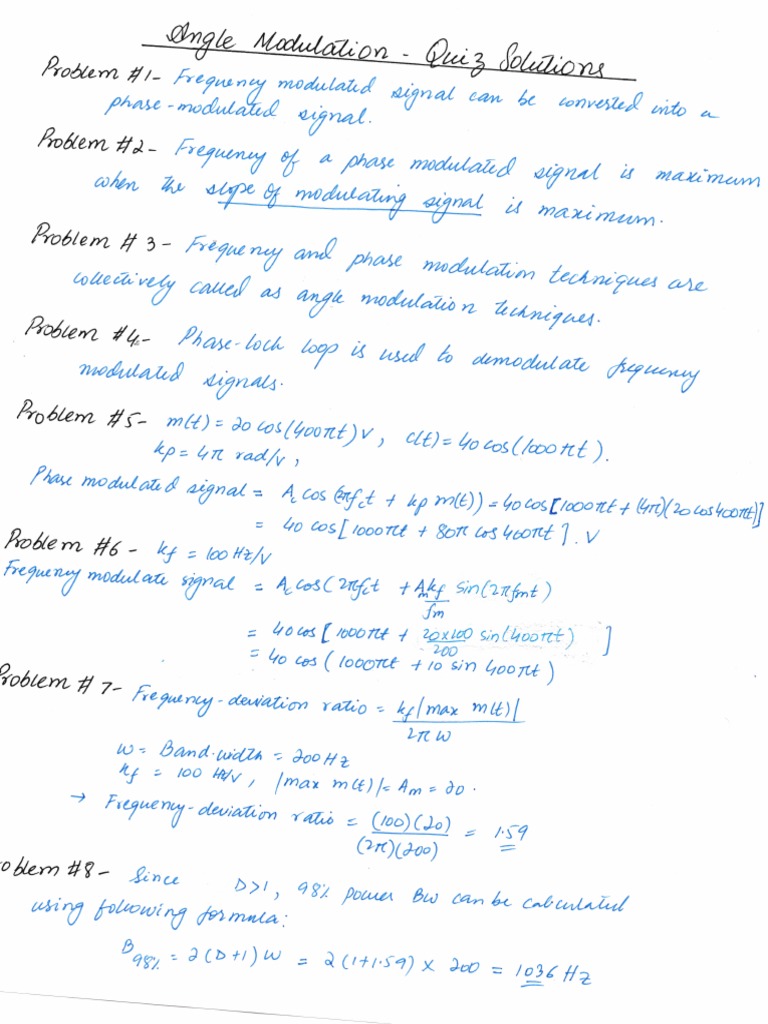 Angle Modulation - Quiz Solutions
Problem #1- Frequency modulated signal can be converted into a
phase-modulated signal.
Problem #2- Frequency of a phase modulated signal is maximum
when the slope of modulating signal is maximum.
Problem # 3 - Frequency and phase modulation techniques are
collectively called as angle modulation techniques.
Problem #4- Phase-lock loop is used to demodulate frequency
modulated signals.
Problem #5- m(t) = 20 cos(400πt) V, c(t) = 40 cos(1000πt).
kp = 4π rad/v,
Phase modulated signal = Ac cos(2πfct + kp m(t)) = 40 cos[1000πt + (4π)(20 cos 400πt)]
= 40 cos[1000πt + 80π cos 400πt]. V
Problem #6 - kf = 100 Hz/V
Frequency modulate signal = Ac cos(2πfct + Am kf/fm sin(2πfmt)
= 40 cos[1000πt + 20x100/200 sin(400πt)]
= 40 cos(1000πt + 10 sin 400πt)
Problem # 7- Frequency-deviation ratio = kf|max m(t)|/2πW
W = Band-width = 200 Hz
kf = 100 Hz/V, |max m(t)| = Am = 20.
→ Frequency-deviation ratio = (100)(20)/(2π)(200) = 1.59
oblem #8- Since D>1, 98% power BW can be calculated
using following formula:
B98% = 2(D+1)W = 2(1+1.59) x 200 = 1036 Hz